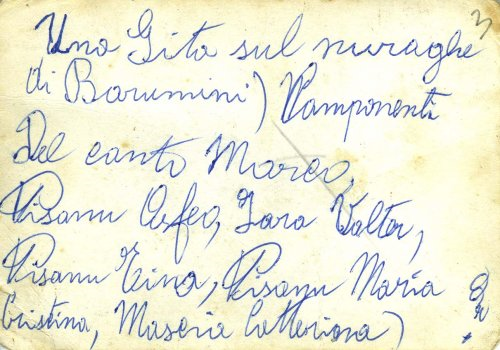 3
Una Gita sul nuraghe
di Barumini) Componenti
Del canto Marco,
Pisanu Orfeo, Zara Valter,
Pisanu Tina, Pisanu Maria
Cristina, Maseria Catterina)